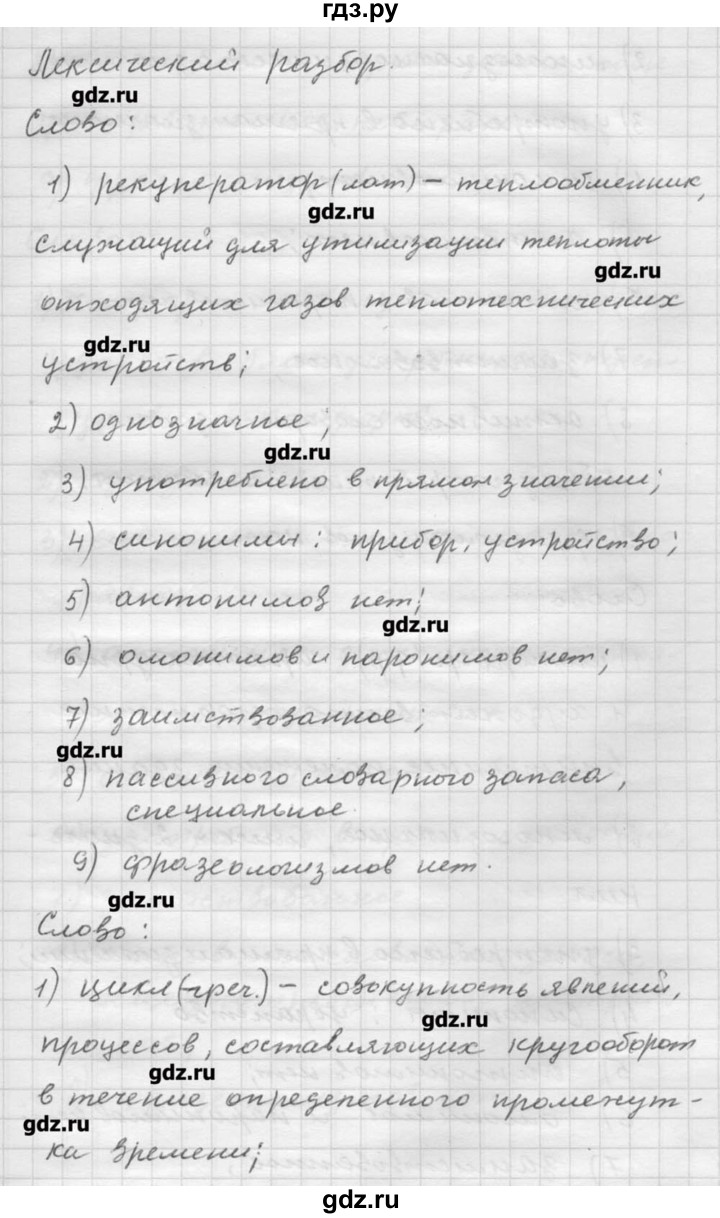 гдз.ру
Лексический разбор.
gdz.ru
Слово:
1) рекуператор (лат) – теплообменник,
gdz.ru
служащий для утилизации теплоты
gdz.ru
отходящих газов теплотехнических
gdz.ru
устройств;
2) однозначное;
gdz.ru
3) употреблено в прямом значении;
4) синонимы: прибор, устройство;
5) антонимов нет;
gdz.ru
6) омонимов и паронимов нет;
7) заимствованное;
gdz.ru
8) пассивного словарного запаса,
специальное.
9) фразеологизмов нет.
gdz.ru
Слово:
1) цикл (греч.) – совокупность явлений,
gdz.ru
процессов, составляющих кругооборот
gdz.ru
в течение определенного промежут-
gdz.ru
ка времени;
gdz.ru